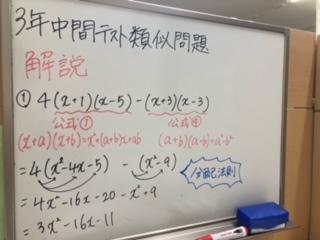 3年中間テスト類似問題
解説
① 4(x+1)(x-5)-(x+3)(x-3)
公式① 公式④
(x+a)(x+b)=x²+(a+b)x+ab (a+b)(a-b)=a²-b²
=4(x²-4x-5) -(x²-9) 分配法則
=4x²-16x-20-x²+9
=3x²-16x-11